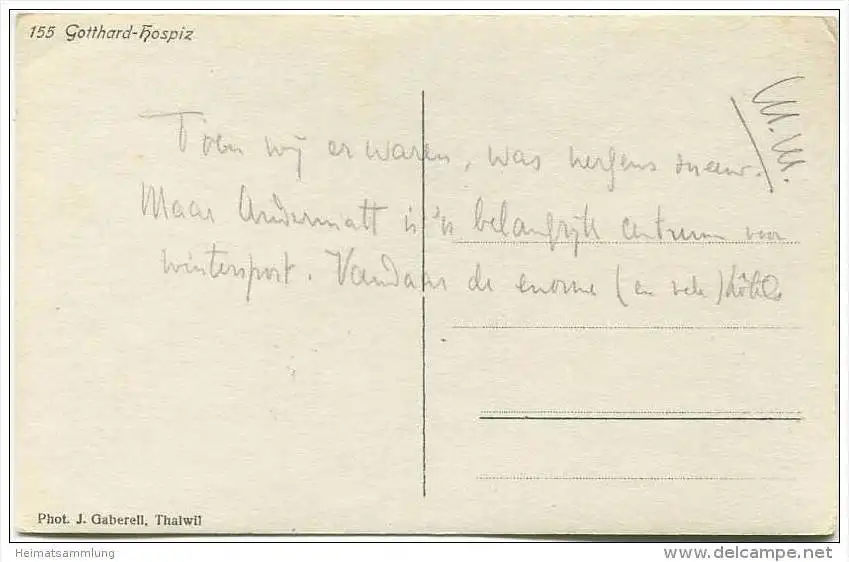 155 Gotthard-Hospiz
Toen wij er waren, was nergens sneeuw.
Maar Andermatt is 'n belangrijk centrum voor
wintersport. Vandaar de enorme (en vele) hôtels
Phot. J. Gaberell, Thalwil
Heimatsammlung
delcampe.net